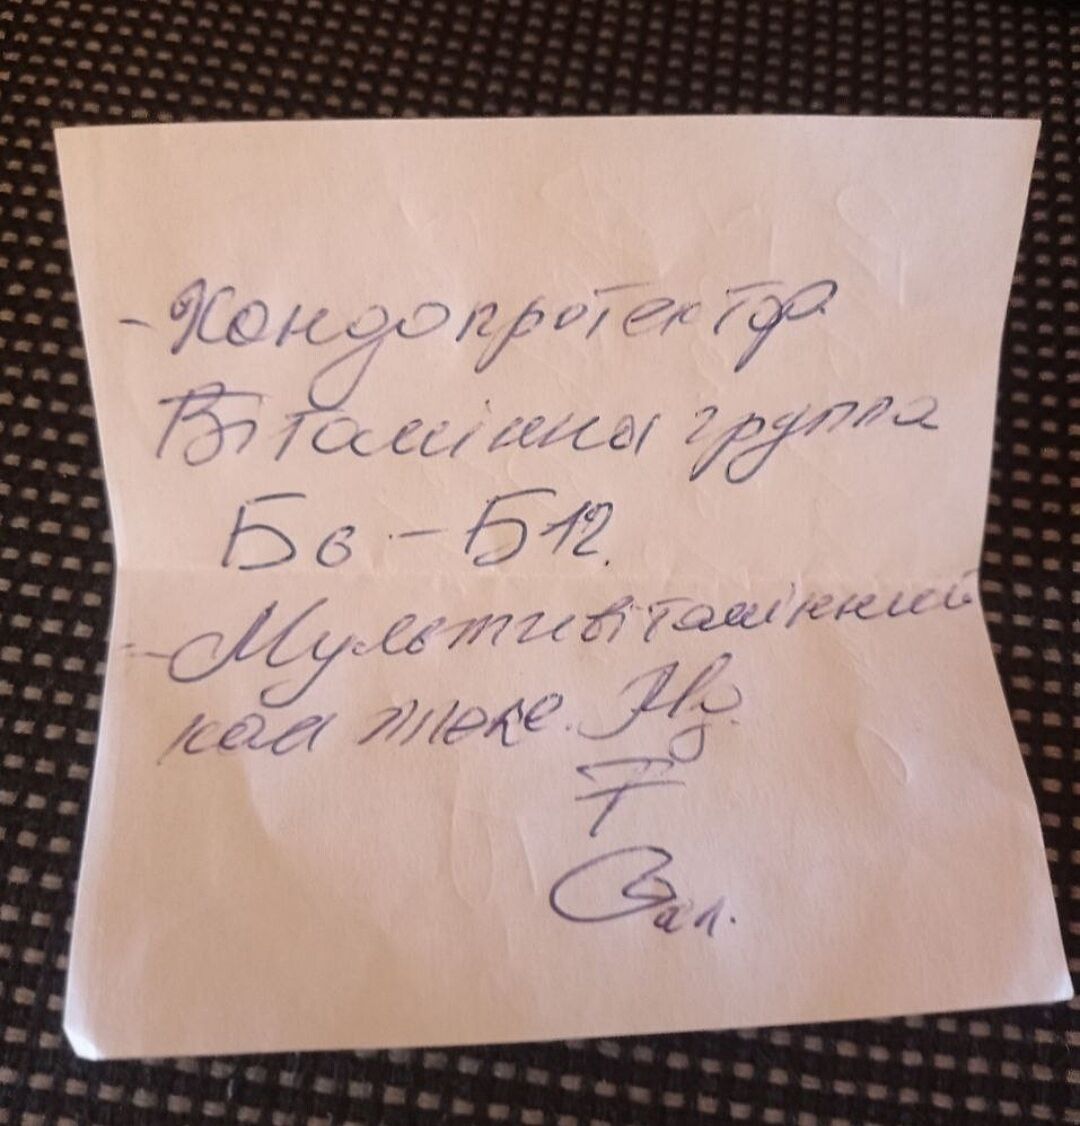 - Хондопротектор
Вітамінна группа
Б6 - Б12.
- Мультивітамінний
комплекс. Mg
F